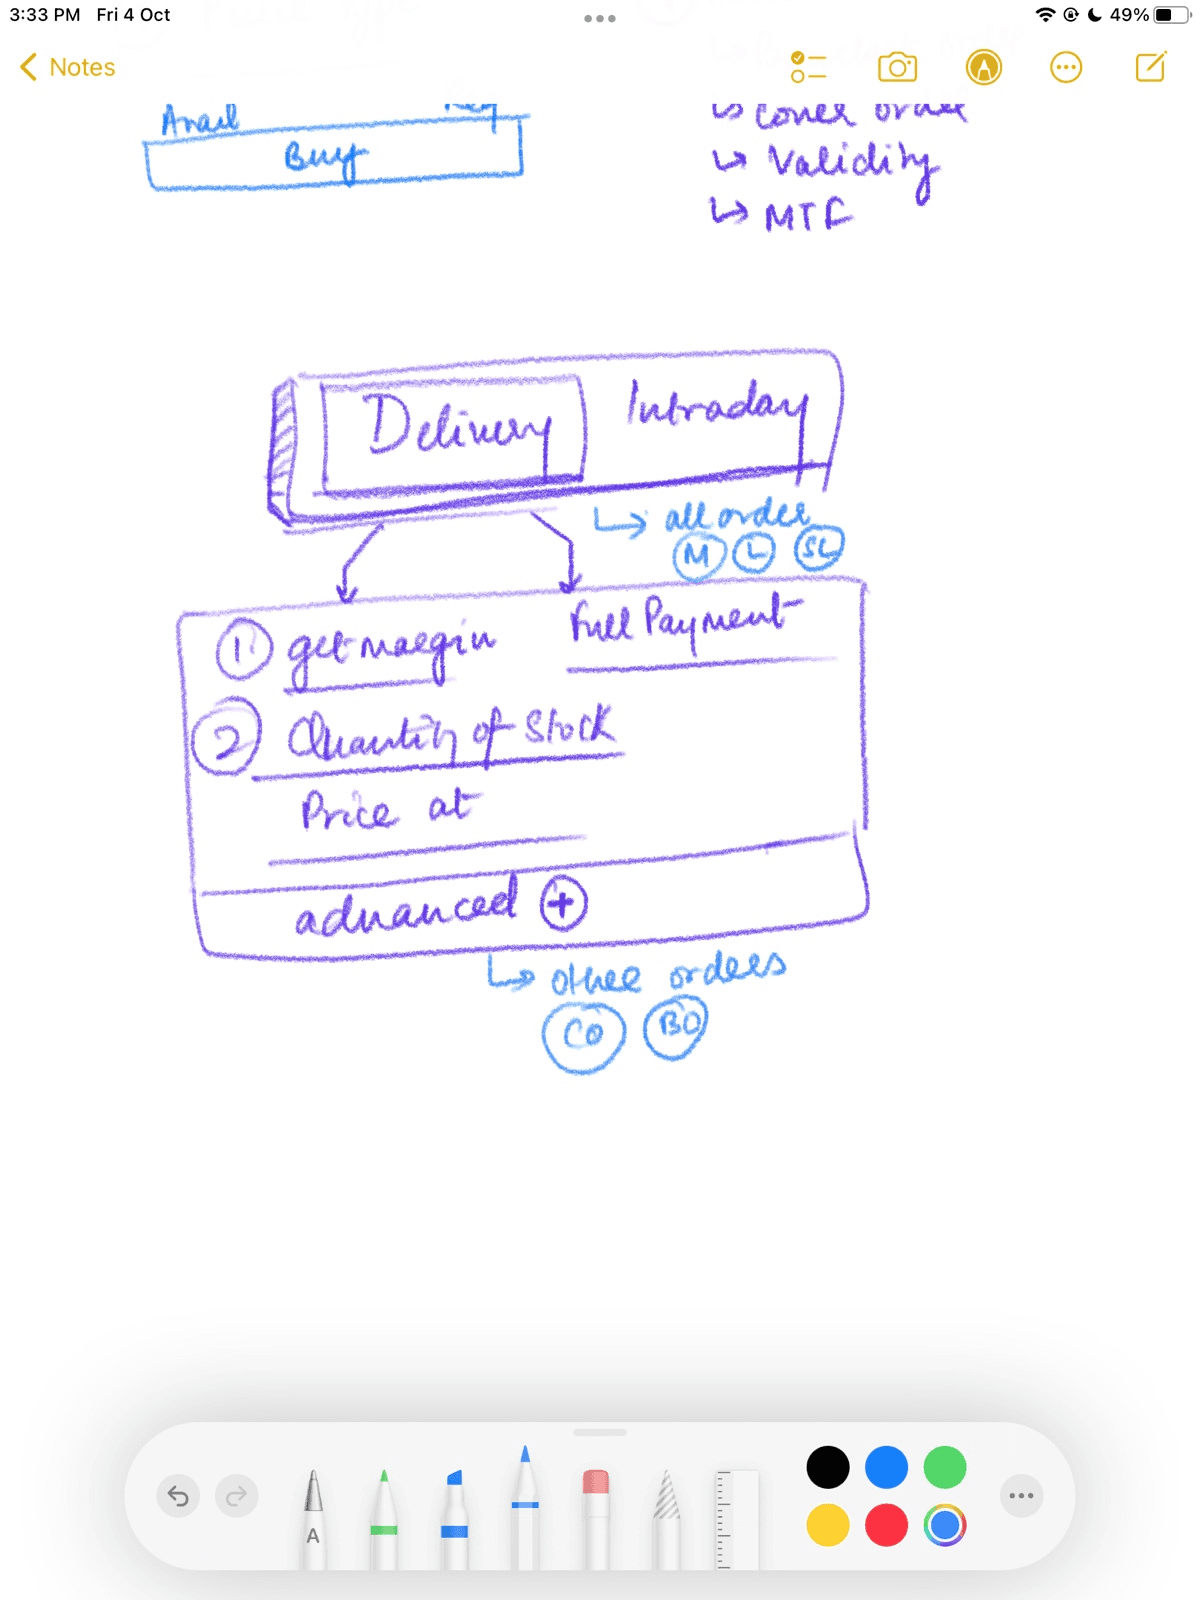 3:33 PM Fri 4 Oct
49%
Notes
Avail Req
Buy
↳ Cover order
↳ Validity
↳ MTF
Delivery Intraday
↳ all order
M L SL
1 get margin Full Payment
2 Quantity of Stock
Price at
advanced +
↳ other orders
CO BO
A